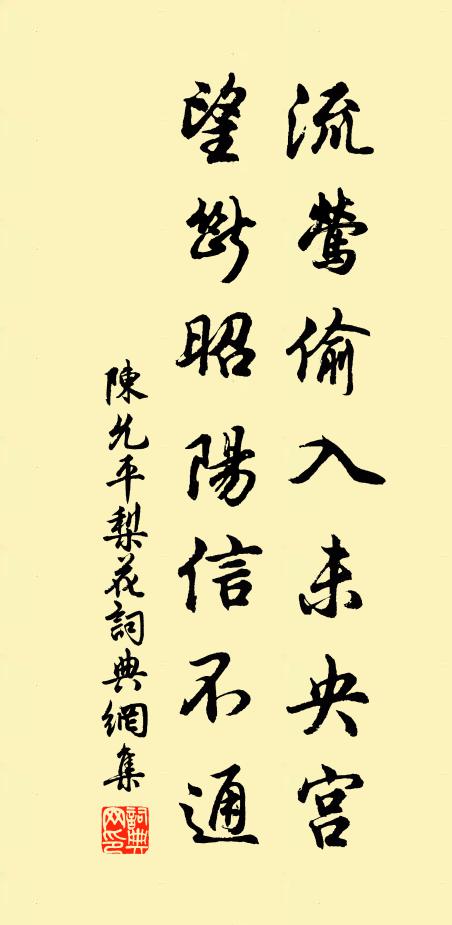 流鶯偷入未央宮
望斷昭陽信不通
陳允平梨花詞典網集
詞典網印